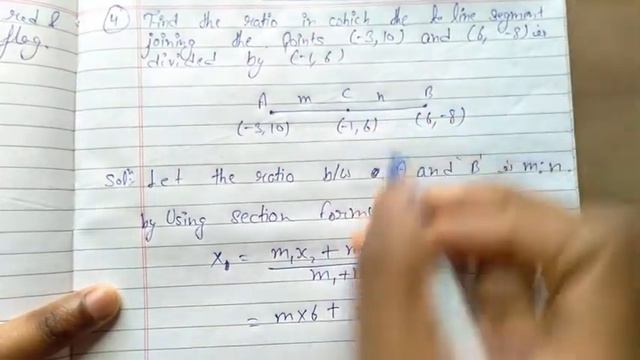 red &
flag.
4 Find the ratio in which the line segment
joining the points (-3,10) and (6, -8) is
divided by (-1,6)
A m C n B
(-3,10) (-1,6) (6,-8)
Sol: Let the ratio b/w A and B is m:n
by Using section form
x, = m,x₂ +
m,+
= m×6 +